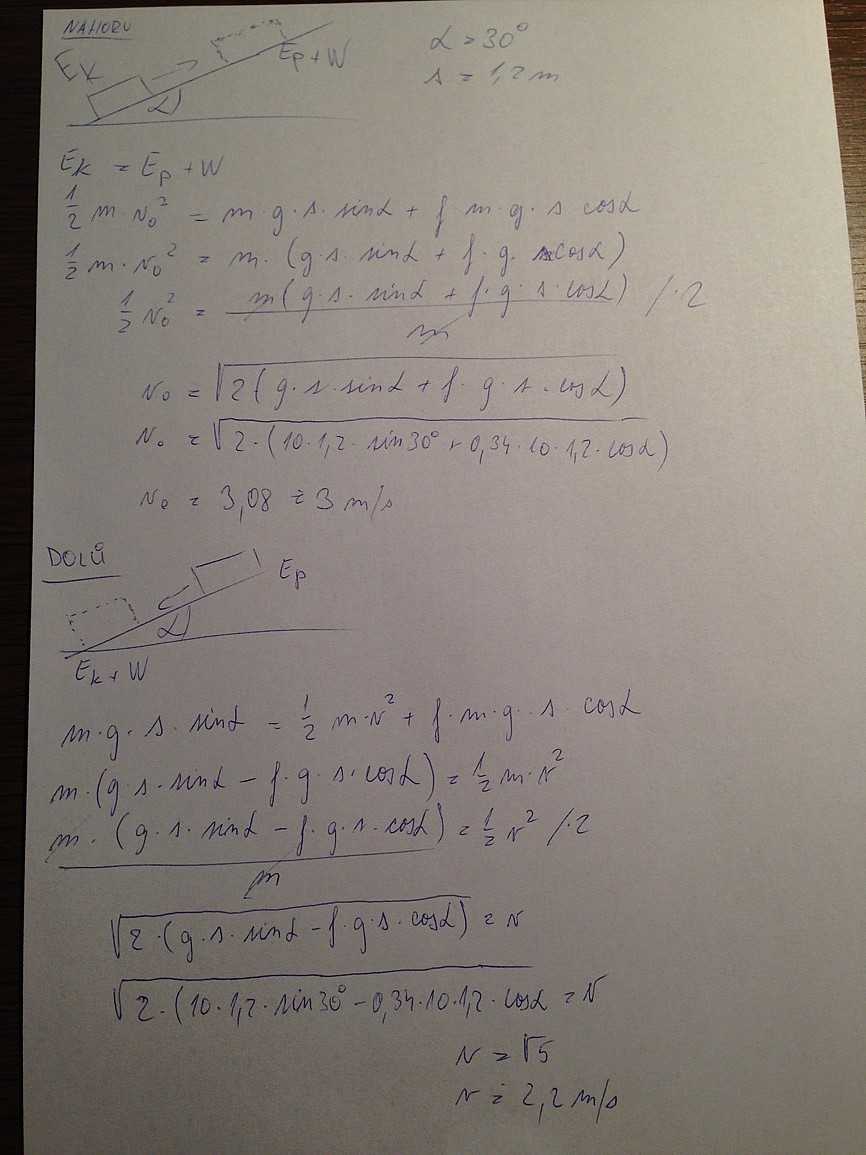 NAHORU
α = 30°
s = 1,2 m
Ek
Ep + W
α
Ek = Ep + W
1/2 m · v₀² = m · g · s · sinα + f · m · g · s cosα
1/2 m · v₀² = m · (g · s · sinα + f · g · s cosα)
1/2 v₀² = m(g · s · sinα + f · g · s · cosα) / m / · 2
v₀ = √2(g · s · sinα + f · g · s · cosα)
v₀ = √2 · (10 · 1,2 · sin30° + 0,34 · 10 · 1,2 · cosα)
v₀ = 3,08 ≐ 3 m/s
DOLŮ
Ep
α
Ek + W
m · g · s · sinα = 1/2 m · v² + f · m · g · s · cosα
m · (g · s · sinα − f · g · s · cosα) = 1/2 m · v²
m · (g · s · sinα − f · g · s · cosα) / m = 1/2 v² / · 2
√2 · (g · s · sinα − f · g · s · cosα) = v
√2 · (10 · 1,2 · sin30° − 0,34 · 10 · 1,2 · cosα = v
v = √5
v ≐ 2,2 m/s